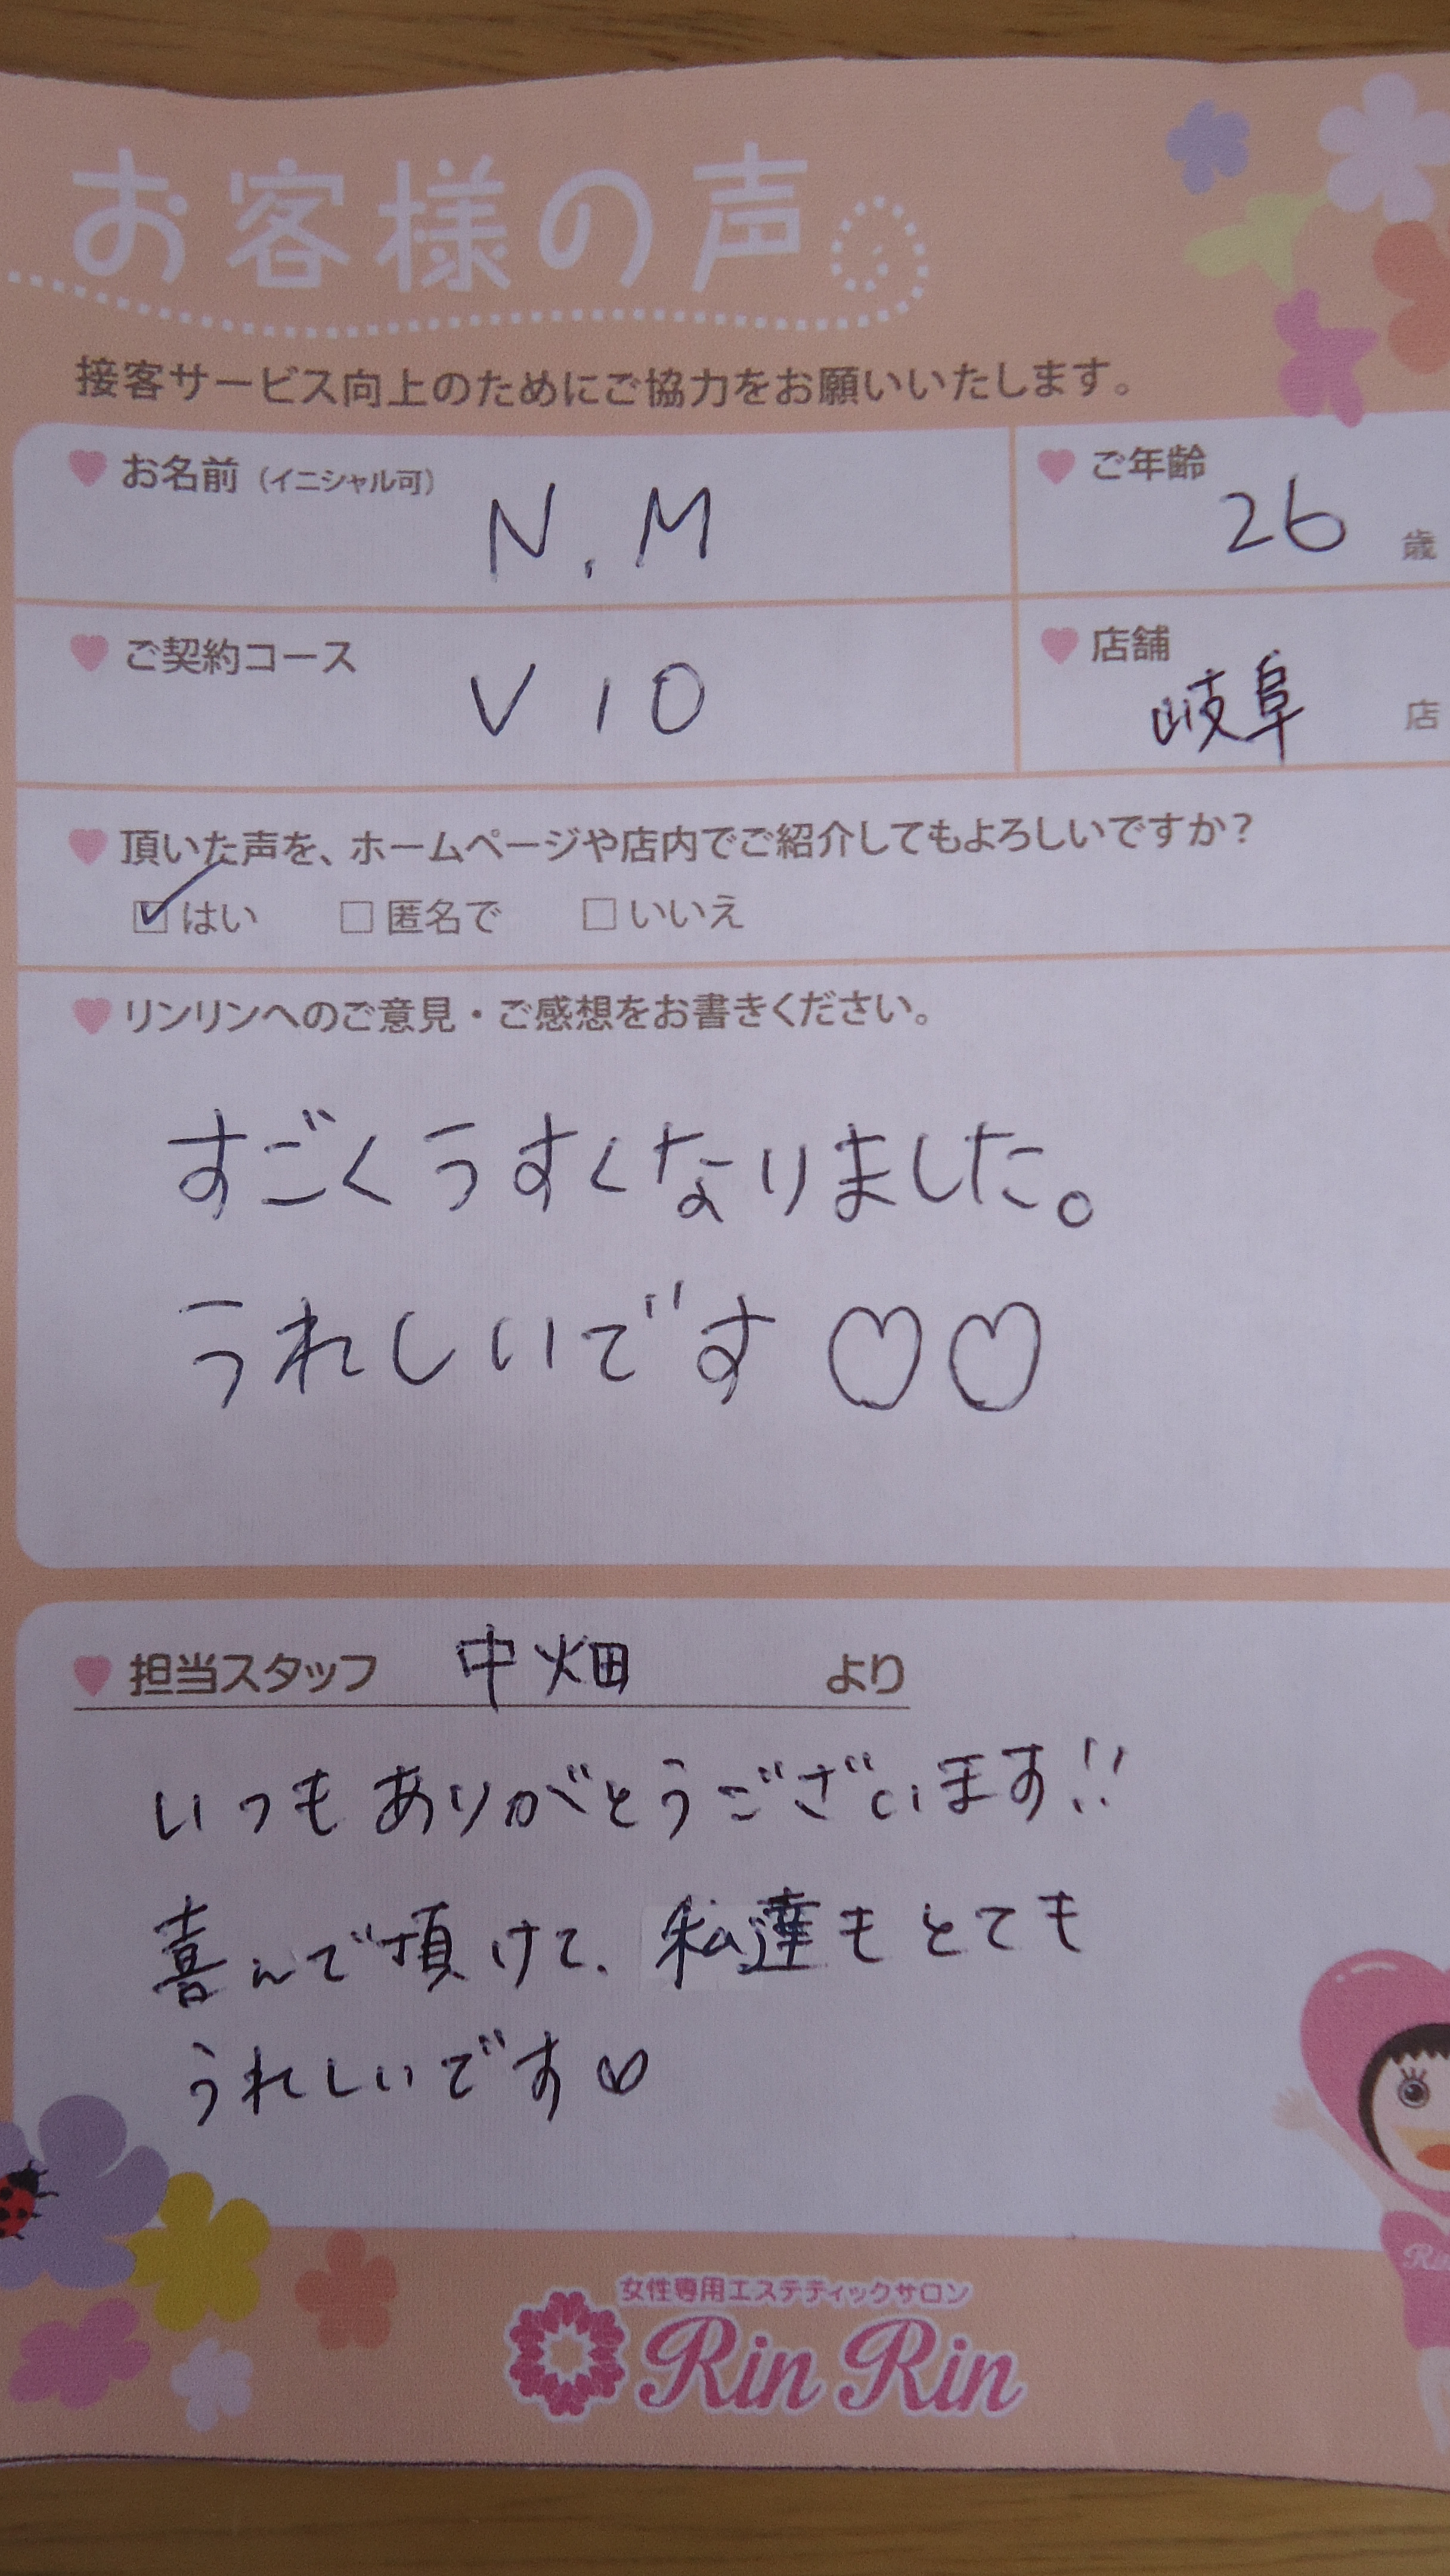 お客様の声
接客サービス向上のためにご協力をお願いいたします。
お名前（イニシャル可） N.M
ご年齢 26 歳
ご契約コース VIO
店舗 岐阜 店
頂いた声を、ホームページや店内でご紹介してもよろしいですか？
☑はい □匿名で □いいえ
リンリンへのご意見・ご感想をお書きください。
すごくうすくなりました。
うれしいです♡♡
担当スタッフ 中畑 より
いつもありがとうございます!!
喜んで頂けて、私達もとても
うれしいです♡
女性専用エステティックサロン
Rin Rin